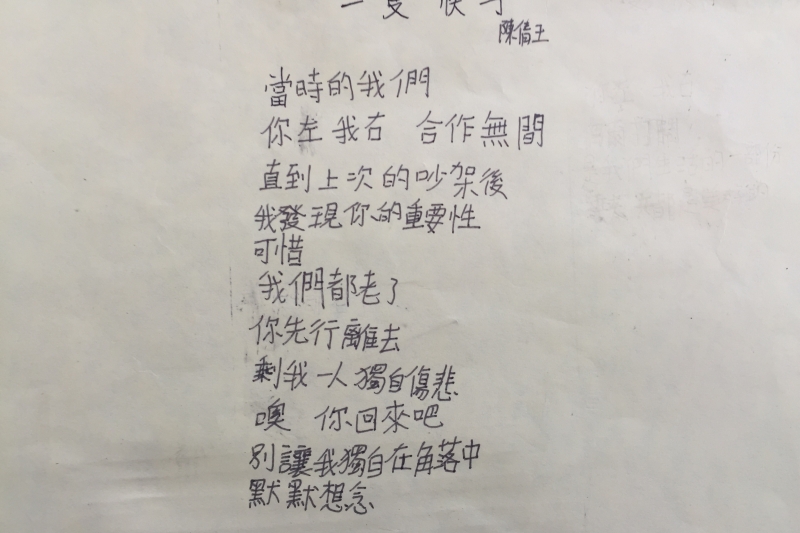 陳倩王
當時的我們
你左我右 合作無間
直到上次的吵架後
我發現你的重要性
可惜
我們都老了
你先行離去
剩我一人獨自傷悲
噢 你回來吧
別讓我獨自在角落中
默默想念